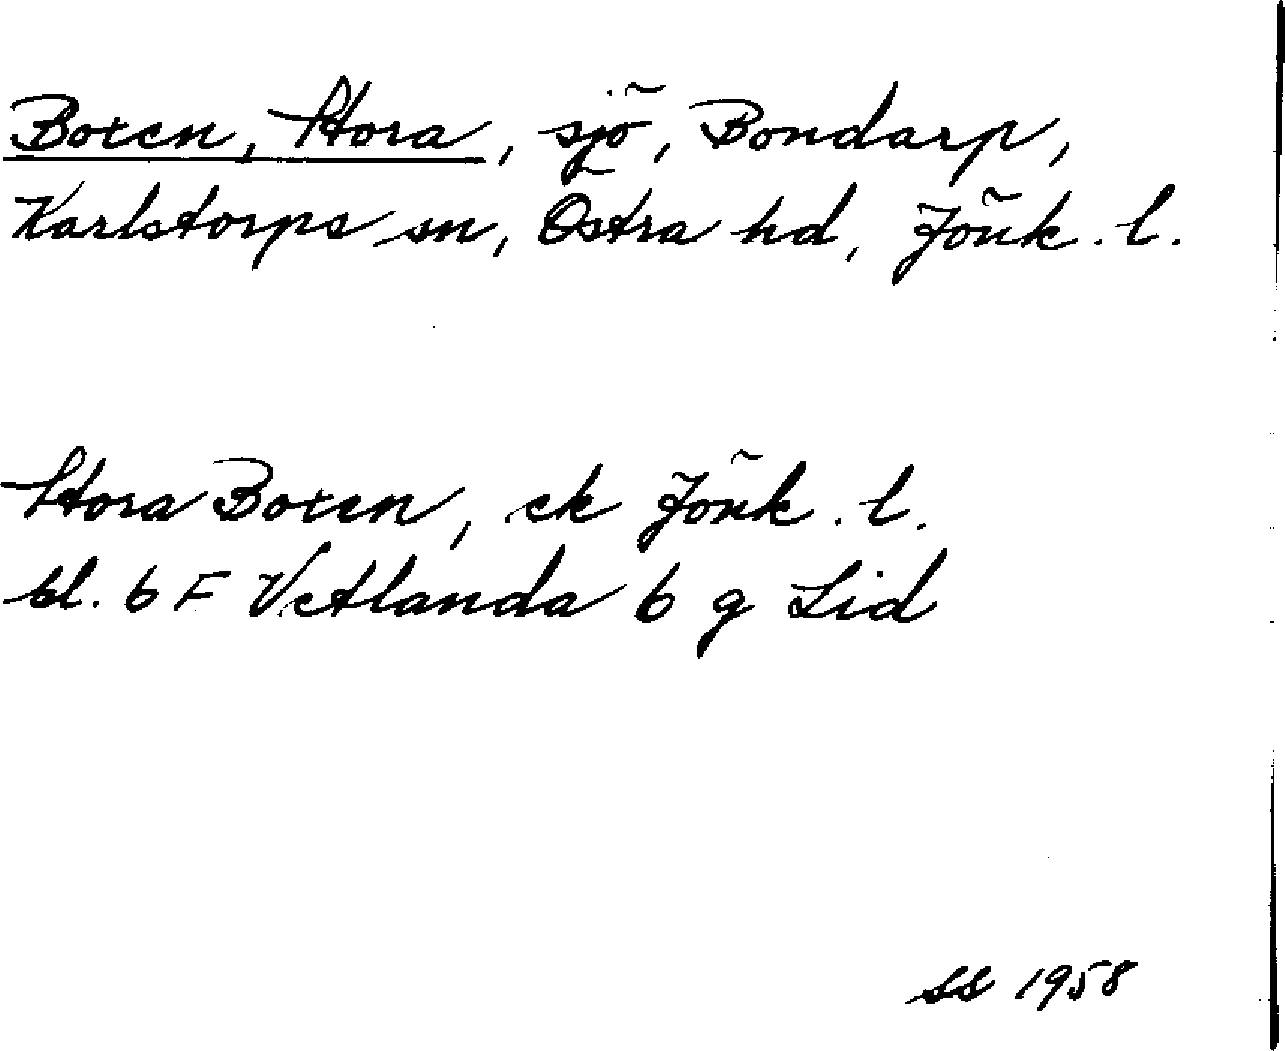 Boten, Stora, sjö, Bondarp,
Karlstorps sn, Östra hd, Jönk. l.
Stora Boten, ek Jönk. l.
bl. 6 F Vetlanda 6 g Lid
SS 1958